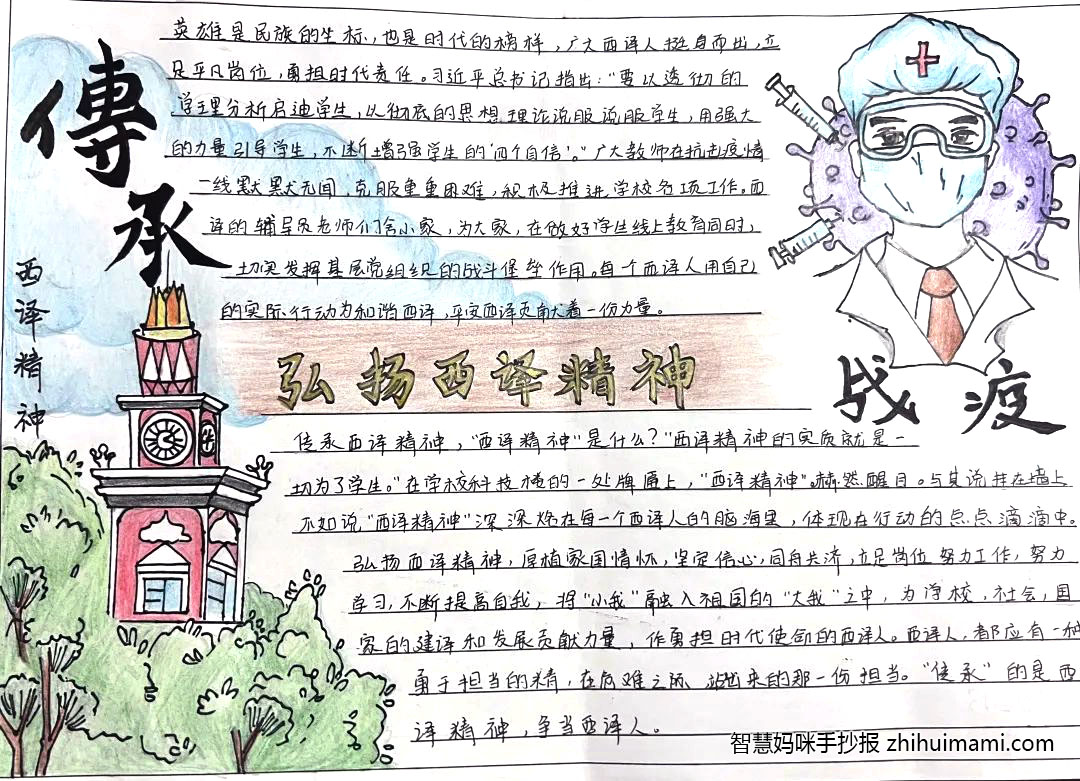 傳承
西译精神
英雄是民族的生标，也是时代的榜样，广大西译人挺身而出，立
足平凡岗位，勇担时代责任。习近平总书记指出：“要以透彻的
学理分析启迪学生，以彻底的思想理论说服说服学生，用强大
的力量引导学生，不断增强学生的‘四个自信’。”广大教师在抗击疫情
一线默默无闻，克服重重困难，积极推进学校各项工作。西
译的辅导员老师们舍小家，为大家，在做好学生线上教育同时，
切实发挥基层党组织的战斗堡垒作用。每个西译人用自己
的实际行动为和谐西译，平安西译贡献着一份力量。
弘扬西译精神
战疫
传承西译精神，“西译精神”是什么？“西译精神的实质就是一
切为了学生。”在学校科技楼的一处牌匾上，“西译精神”赫然醒目。与其说挂在墙上
不如说“西译精神”深深烙在每一个西译人的脑海里，体现在行动的点点滴滴中。
弘扬西译精神，厚植家国情怀，坚定信心，同舟共济，立足岗位努力工作，努力
学习，不断提高自我，将“小我”融入祖国的“大我”之中，为学校，社会，国
家的建译和发展贡献力量，作勇担时代使命的西译人。西译人，都应有一种
勇于担当的精，在危难之际站出来的那一份担当。“传承”的是西
译精神，争当西译人。
智慧妈咪手抄报 zhihuimami.com